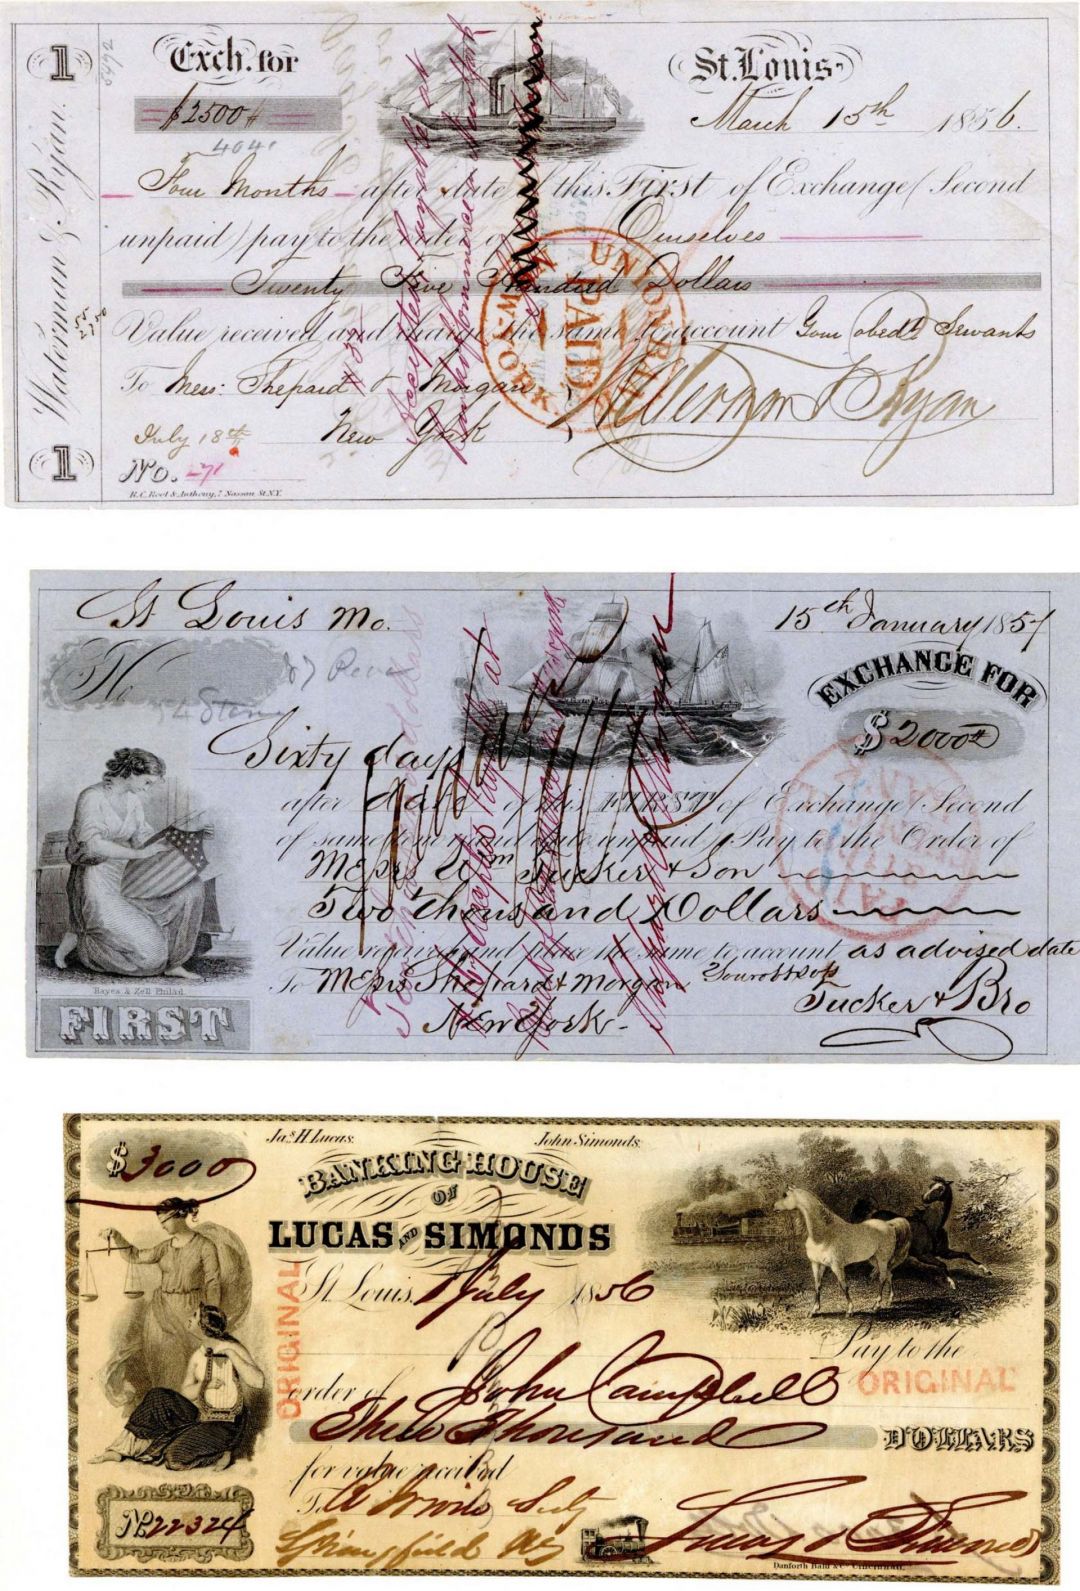 1
Exch. for
St. Louis
$2500
March 15th 1856.
4041
Four Months after date of this First of Exchange (Second
unpaid) pay to the order of Ourselves
Twenty Five Hundred Dollars
Value received and charge the same to account Your obedt Servants
To Mess: Shepard & Morgan
Waterman & Ryan
July 18th New York
No. 71
1
R.C. Root & Anthony, 7 Nassau St. N.Y.
Waterman & Ryan.
8492
UNION BANK
PAID
NEW-YORK
Accepted payable at
St Louis Mo. 15th January 1857
No
EXCHANGE FOR
$2000
Sixty days
after date of this FIRST of Exchange (Second
of same tenor and date unpaid) Pay to the Order of
Messrs Wm Tucker & Son
Two Thousand Dollars
Value received and place the same to account as advised date
To Messrs Shepard & Morgan Your obt Svts
New York Tucker & Bro
Hayes & Zell Philad.
FIRST
PAID
$3000
Jas. H. Lucas. John Simonds.
BANKING HOUSE
OF
LUCAS AND SIMONDS
St. Louis, 1 July 1856
Pay to the
order of John Campbell
ORIGINAL
ORIGINAL
Three Thousand DOLLARS
for value received
To
No 22324
Springfield
Lucas & Simonds
Danforth Bald & Co. Cincinnati.